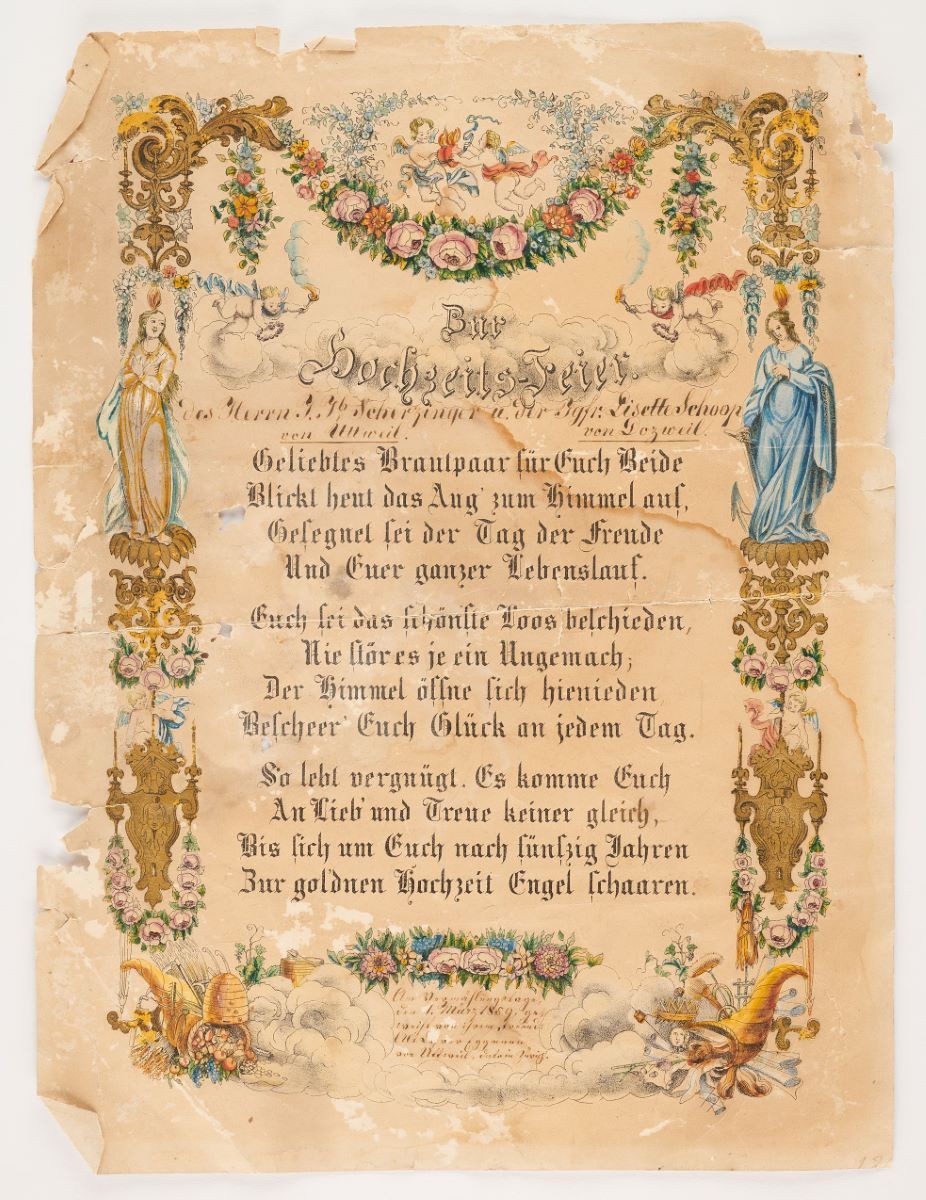 Zur
Hochzeits-Feier.
des Herrn J. Jb Scherzinger u. der Jgfr. Lisette Schoop
von Uttweil. von Dozweil.
Geliebtes Brautpaar für Euch Beide
Blickt heut das Aug' zum Himmel auf,
Gesegnet sei der Tag der Freude
Und Euer ganzer Lebenslauf.
Euch sei das schönste Loos beschieden,
Nie stör es je ein Ungemach;
Der Himmel öffne sich hienieden
Bescheer' Euch Glück an jedem Tag.
So lebt vergnügt. Es komme Euch
An Lieb' und Treue keiner gleich,
Bis sich um Euch nach fünfzig Jahren
Zur gold'nen Hochzeit Engel schaaren.
Am Vermählungstage
den 1. März 1859. ge-
von ihrem
von Uttweil,